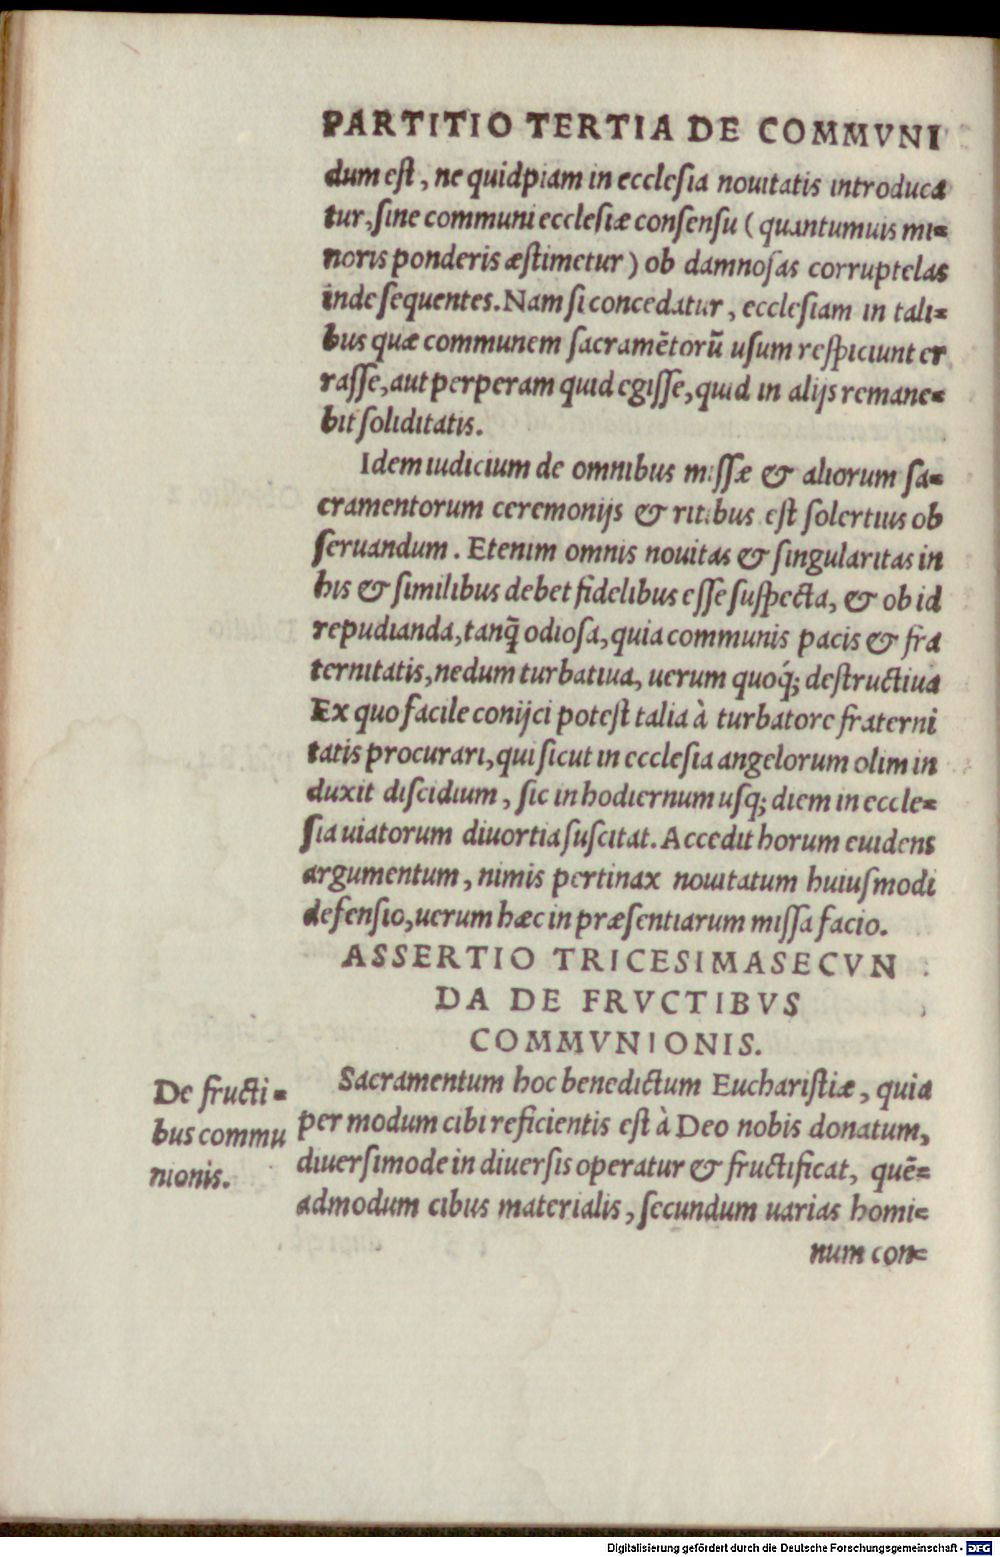 PARTITIO TERTIA DE COMMVNI
dum eſt, ne quidpiam in eccleſia nouitatis introduca
tur, ſine communi eccleſiæ conſenſu (quantumuis mi=
noris ponderis æſtimetur) ob damnoſas corruptelas
inde ſequentes. Nam ſi concedatur, eccleſiam in tali=
bus quæ communem ſacramētorū uſum reſpiciunt er
raſſe, aut perperam quid egiſſe, quid in alijs remane=
bit ſoliditatis.
Idem iudicium de omnibus miſſæ & aliorum ſa=
cramentorum ceremonijs & ritibus eſt ſolertius ob
ſeruandum. Etenim omnis nouitas & ſingularitas in
his & ſimilibus debet fidelibus eſſe ſuſpecta, & ob id
repudianda, tanq̃ odioſa, quia communis pacis & fra
ternitatis, nedum turbatiua, uerum quoq́; deſtructiua
Ex quo facile conijci poteſt talia à turbatore fraterni
tatis procurari, qui ſicut in eccleſia angelorum olim in
duxit diſcidium, ſic in hodiernum uſq; diem in eccle=
ſia uiatorum diuortia ſuſcitat. Accedit horum euidens
argumentum, nimis pertinax nouitatum huiuſmodi
defenſio, uerum hæc in præſentiarum miſſa facio.
ASSERTIO TRICESIMASECVN
DA DE FRVCTIBVS
COMMVNIONIS.
De fructi=
bus commu
nionis.
Sacramentum hoc benedictum Euchariſtiæ, quia
per modum cibi reficientis eſt à Deo nobis donatum,
diuerſimode in diuerſis operatur & fructificat, quē=
admodum cibus materialis, ſecundum uarias homi=
num con=
Digitalisierung gefördert durch die Deutsche Forschungsgemeinschaft - DFG